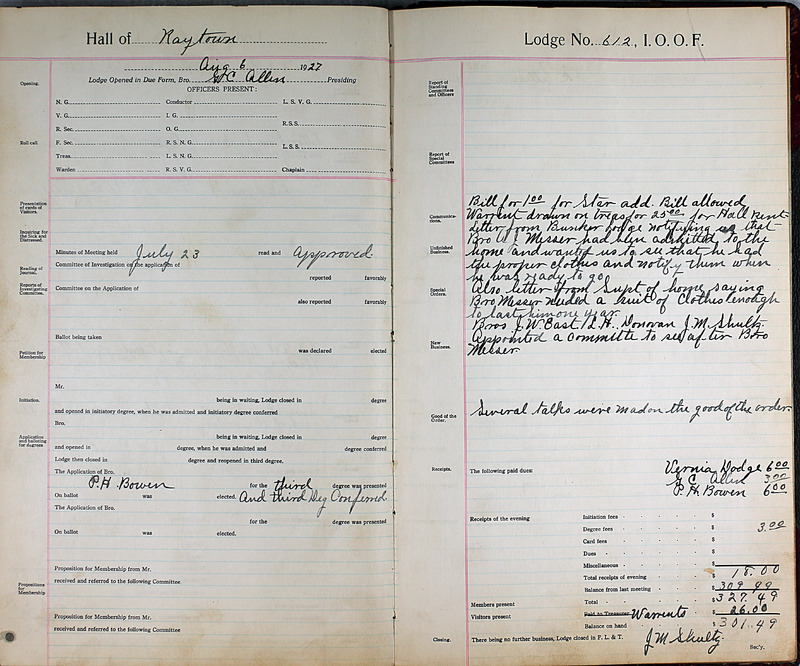 Hall of Raytown
Aug 6 1927
Lodge Opened in Due Form, Bro. G C Allen Presiding
OFFICERS PRESENT:
Opening.
N. G. Conductor L. S. V. G.
V. G. I. G.
R. S. S.
R. Sec. O. G.
Roll call
F. Sec. R. S. N. G.
L. S. S.
Treas. L. S. N. G.
Warden R. S. V. G. Chaplain
Presentation of cards of Visitors.
Inquiring for the Sick and Distressed.
Minutes of Meeting held July 23 read and Approved
Reading of Journal.
Committee of Investigation on the application of
reported favorably
Reports of Investigating Committee.
Committee on the Application of
also reported favorably
Ballot being taken
was declared elected
Petition for Membership
Mr.
Initiation.
being in waiting, Lodge closed in degree
and opened in initiatory degree, when he was admitted and initiatory degree conferred
Bro.
Application and balloting for degrees
being in waiting, Lodge closed in degree
and opened in degree, when he was admitted and degree conferred
Lodge then closed in degree and reopened in third degree.
The Application of Bro.
P. H. Bowen for the third degree was presented
On ballot was elected. And third Deg Conferred
The Application of Bro.
for the degree was presented
On ballot was elected.
Proposition for Membership from Mr.
received and referred to the following Committee
Propositions for Membership
Proposition for Membership from Mr.
received and referred to the following Committee
Lodge No. 612, I. O. O. F.
Report of Standing Committees and Officers
Report of Special Committees
Bill for 1.00 for Star add. Bill allowed
Communications.
Warrent drawn on treas for 25.00 for Hall Rent
Letter from Bunker Lodge notifying us that
Bro Messer had been admitted to the
Unfinished Business.
home and want of us to see that he had
the proper clothes and notify them when
he was ready to go
Special Orders.
Also letter from Supt of home saying
Bro Messer needed a suit of Clothes enough
to last him one year
Bros J. W. East, Donovan J. M. Shultz
New Business.
Appointed a Committe to see after Bro
Messer
Good of the Order.
Several talks were mad on the good of the order.
Receipts.
The following paid dues: Vernia Dodge 6.00
G C Allen 3.00
P. H. Bowen 6.00
Receipts of the evening
Initiation fees $
Degree fees $ 3.00
Card fees $
Dues $
Miscellaneous $
Total receipts of evening $ 18.00
Balance from last meeting $ 309.49
Members present
Total $ 327.49
Visitors present
Paid to Treasurer Warrents $ 26.00
Balance on hand $ 301.49
Closing.
There being no further business, Lodge closed in F. L. & T.
J M Shultz
Sec'y.